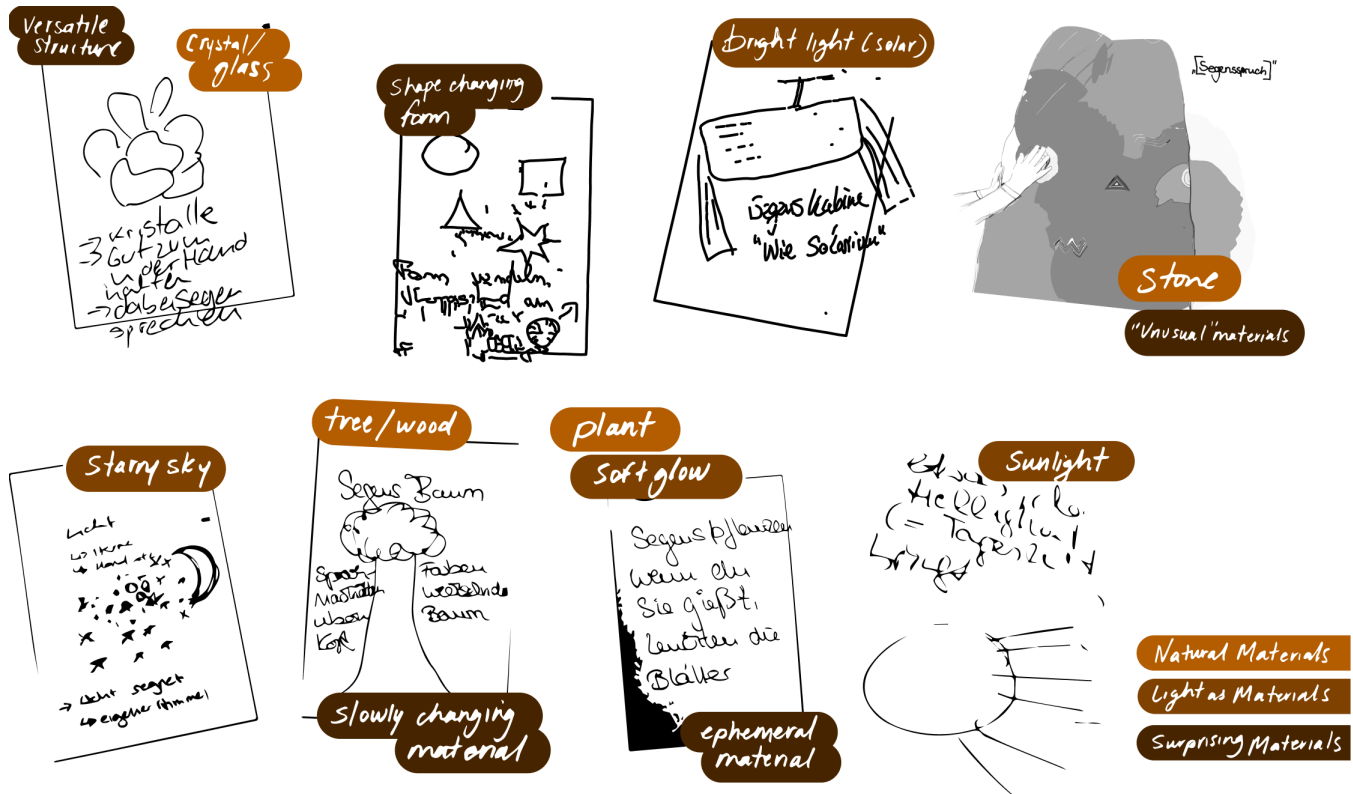 Versatile
structure
Crystal/
glass
→ Kristalle
→ Gut zum
in der Hand
halten
→ dabei Segen
sprechen
shape changing
form
Form
an
bright light (solar)
Segens Kabine
"Wie Solarium"
„[Segensspruch]"
Stone
"Unusual" materials
Starry sky
Licht
Sterne
→ Licht segnet
↳ eigener Himmel
tree/wood
Segens Baum
Sprach-
nachrichten
übern
Kopf
Farben
wechselnder
Baum
slowly changing
material
plant
Soft glow
Segenspflanzen
wenn du
Sie gießt,
leuchten die
Blätter
ephemeral
material
Sunlight
Helligkeit
(= Tageszeit
Natural Materials
Light as Materials
Surprising Materials